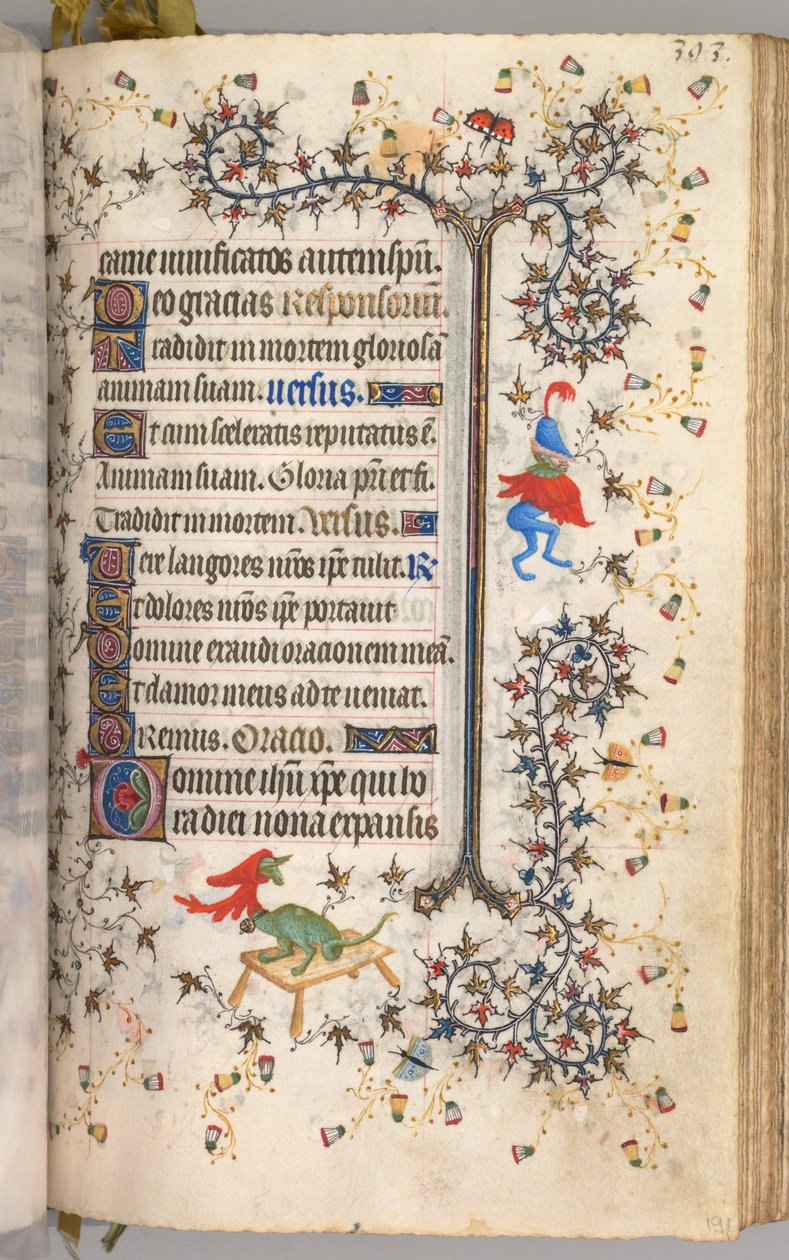 303.
carne iuiificatos autem spū.
Deo gracias Responsoriū.
Tradidit in mortem gloriosā
animam suam. uersus.
Et cum sceleratis reputatus ē.
Animam suam. Gloria pr̄i et fi.
Tradidit in mortem. Versus.
Uere langores nr̄os ip̄e tulit. R̷
Et dolores nr̄os ip̄e portauit
Domine exaudi oracionem meā.
Et clamor meus ad te ueniat.
Oremus. Oracio.
Domine ihū xp̄e qui ho
ra diei nona expansis
191